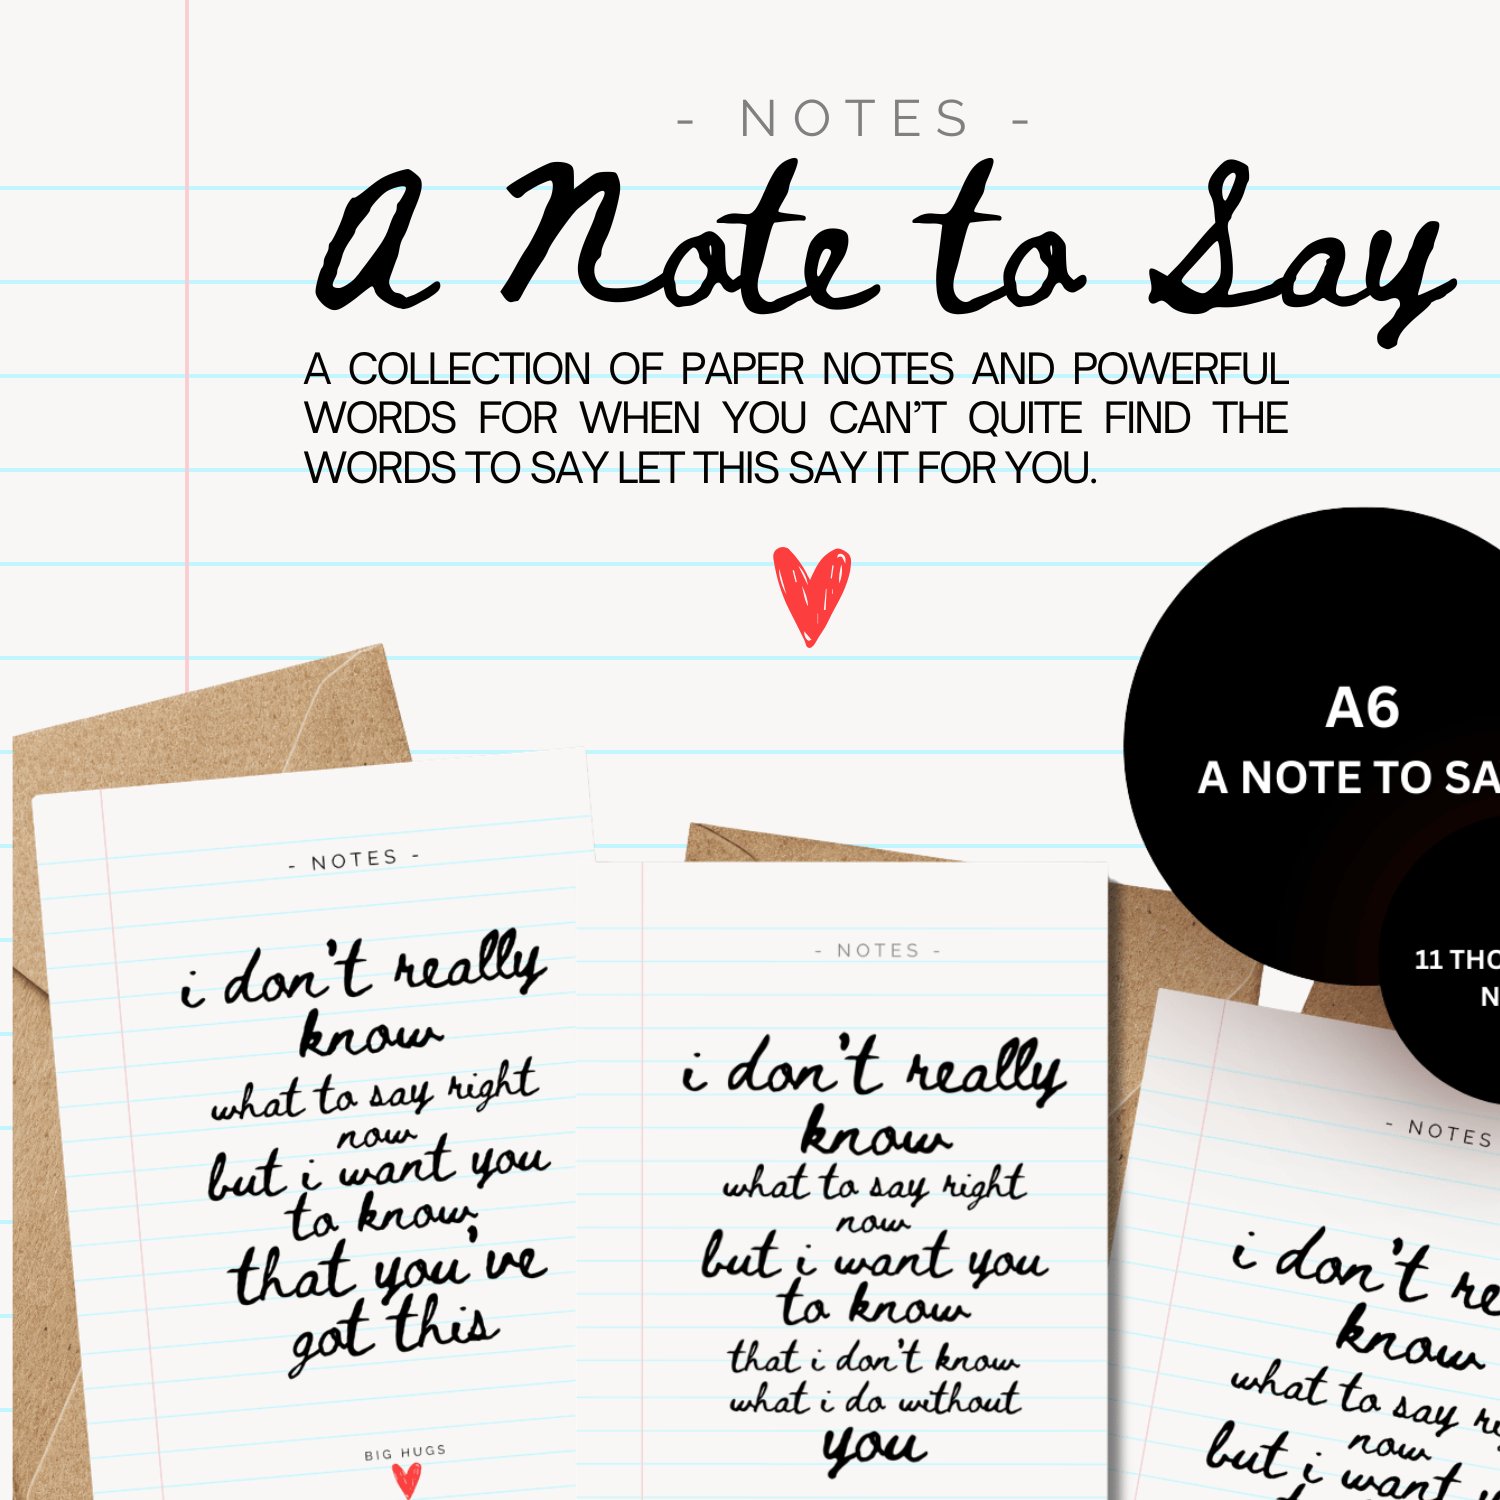 - NOTES -
A Note to Say
A COLLECTION OF PAPER NOTES AND POWERFUL
WORDS FOR WHEN YOU CAN'T QUITE FIND THE
WORDS TO SAY LET THIS SAY IT FOR YOU.
A6
A NOTE TO SA
11 THO
N
- NOTES -
i don't really
know
what to say right
now
but i want you
to know,
that you've
got this
BIG HUGS
- NOTES -
i don't really
know
what to say right
now
but i want you
to know
that i don't know
what i do without
you
- NOTES
i don't re
know
what to say
now
but i want